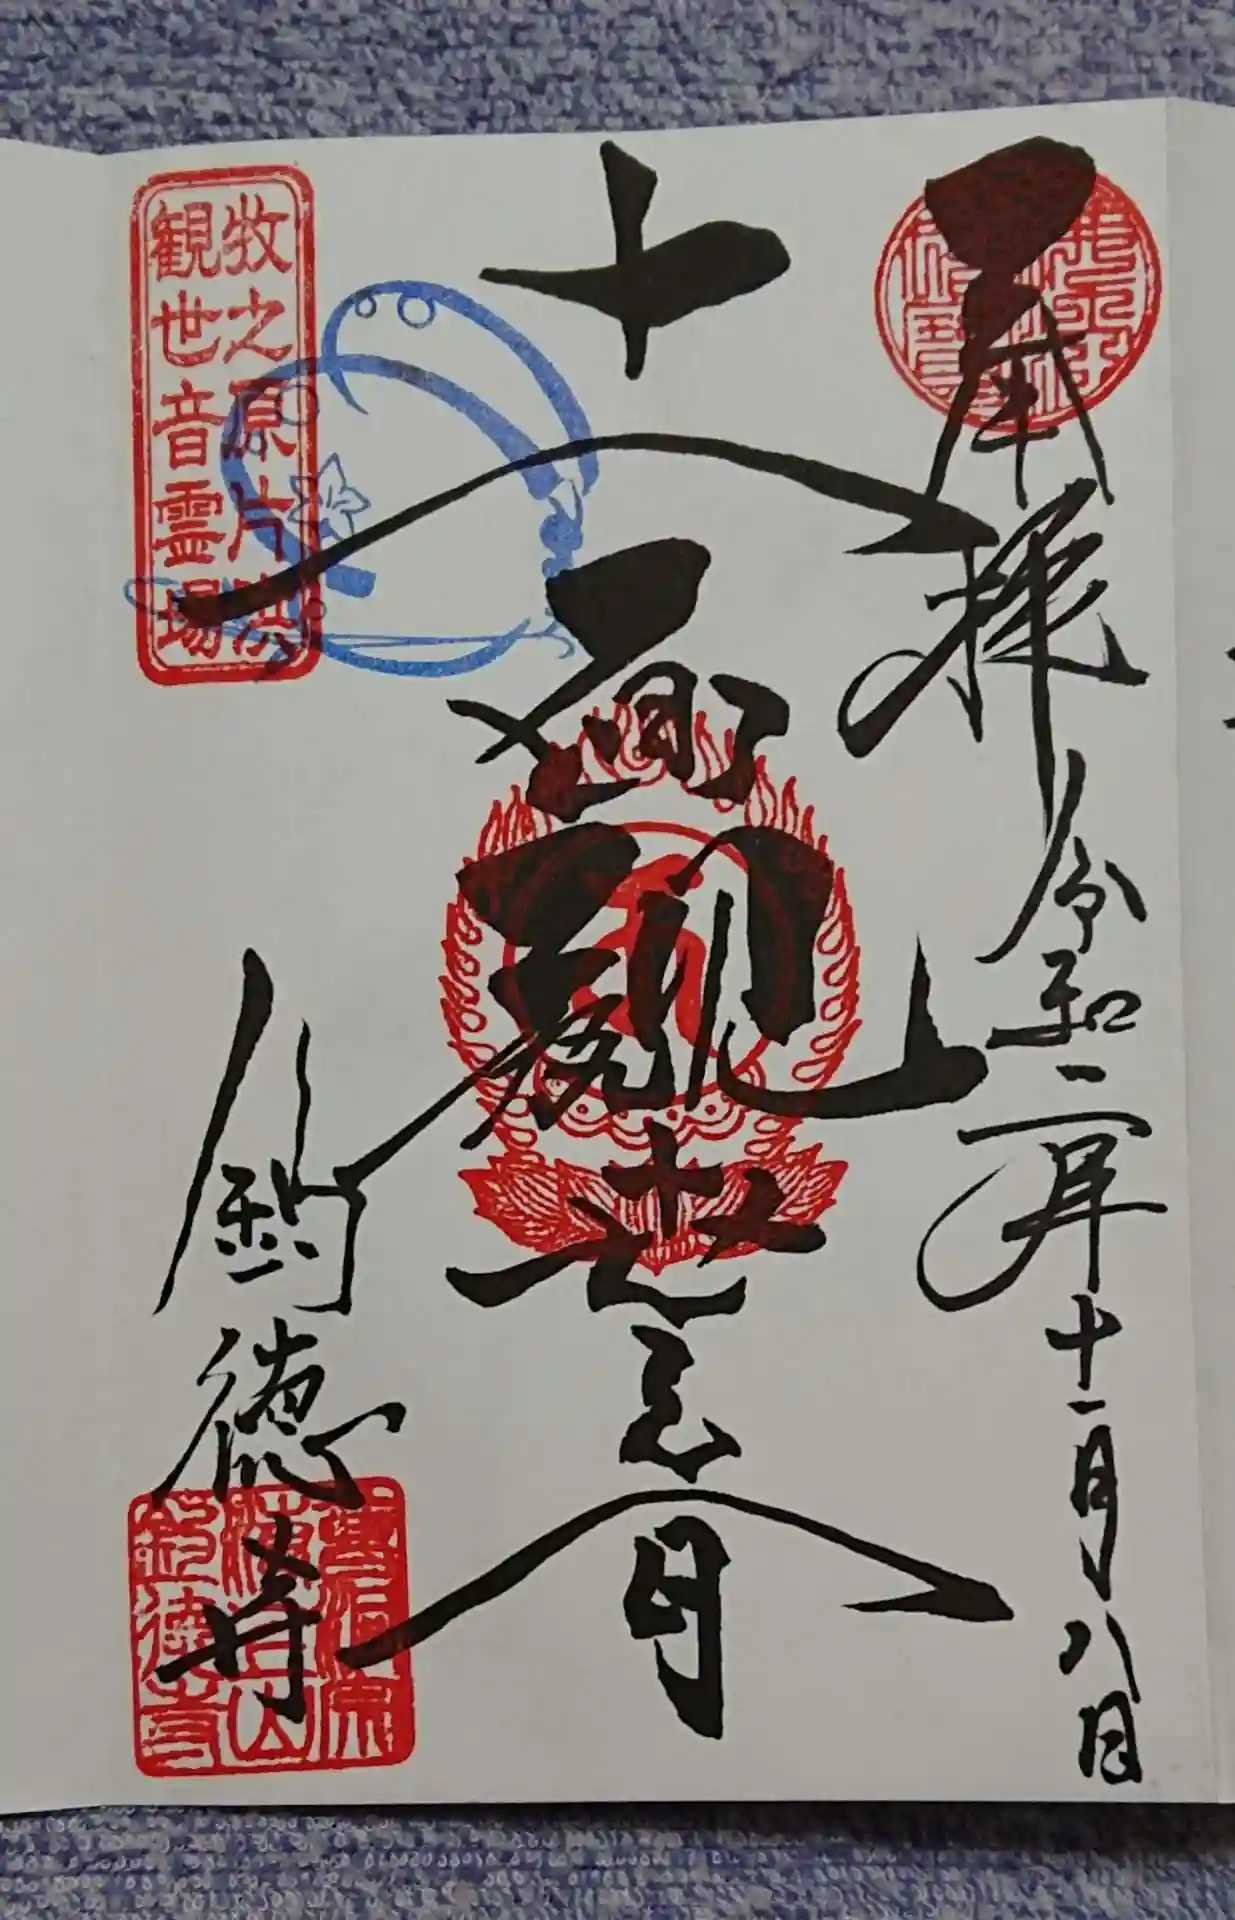 奉拝 令和二年十一月八日
十一面観世音
釣徳寺
牧之原片浜
観世音霊場
釣徳寺